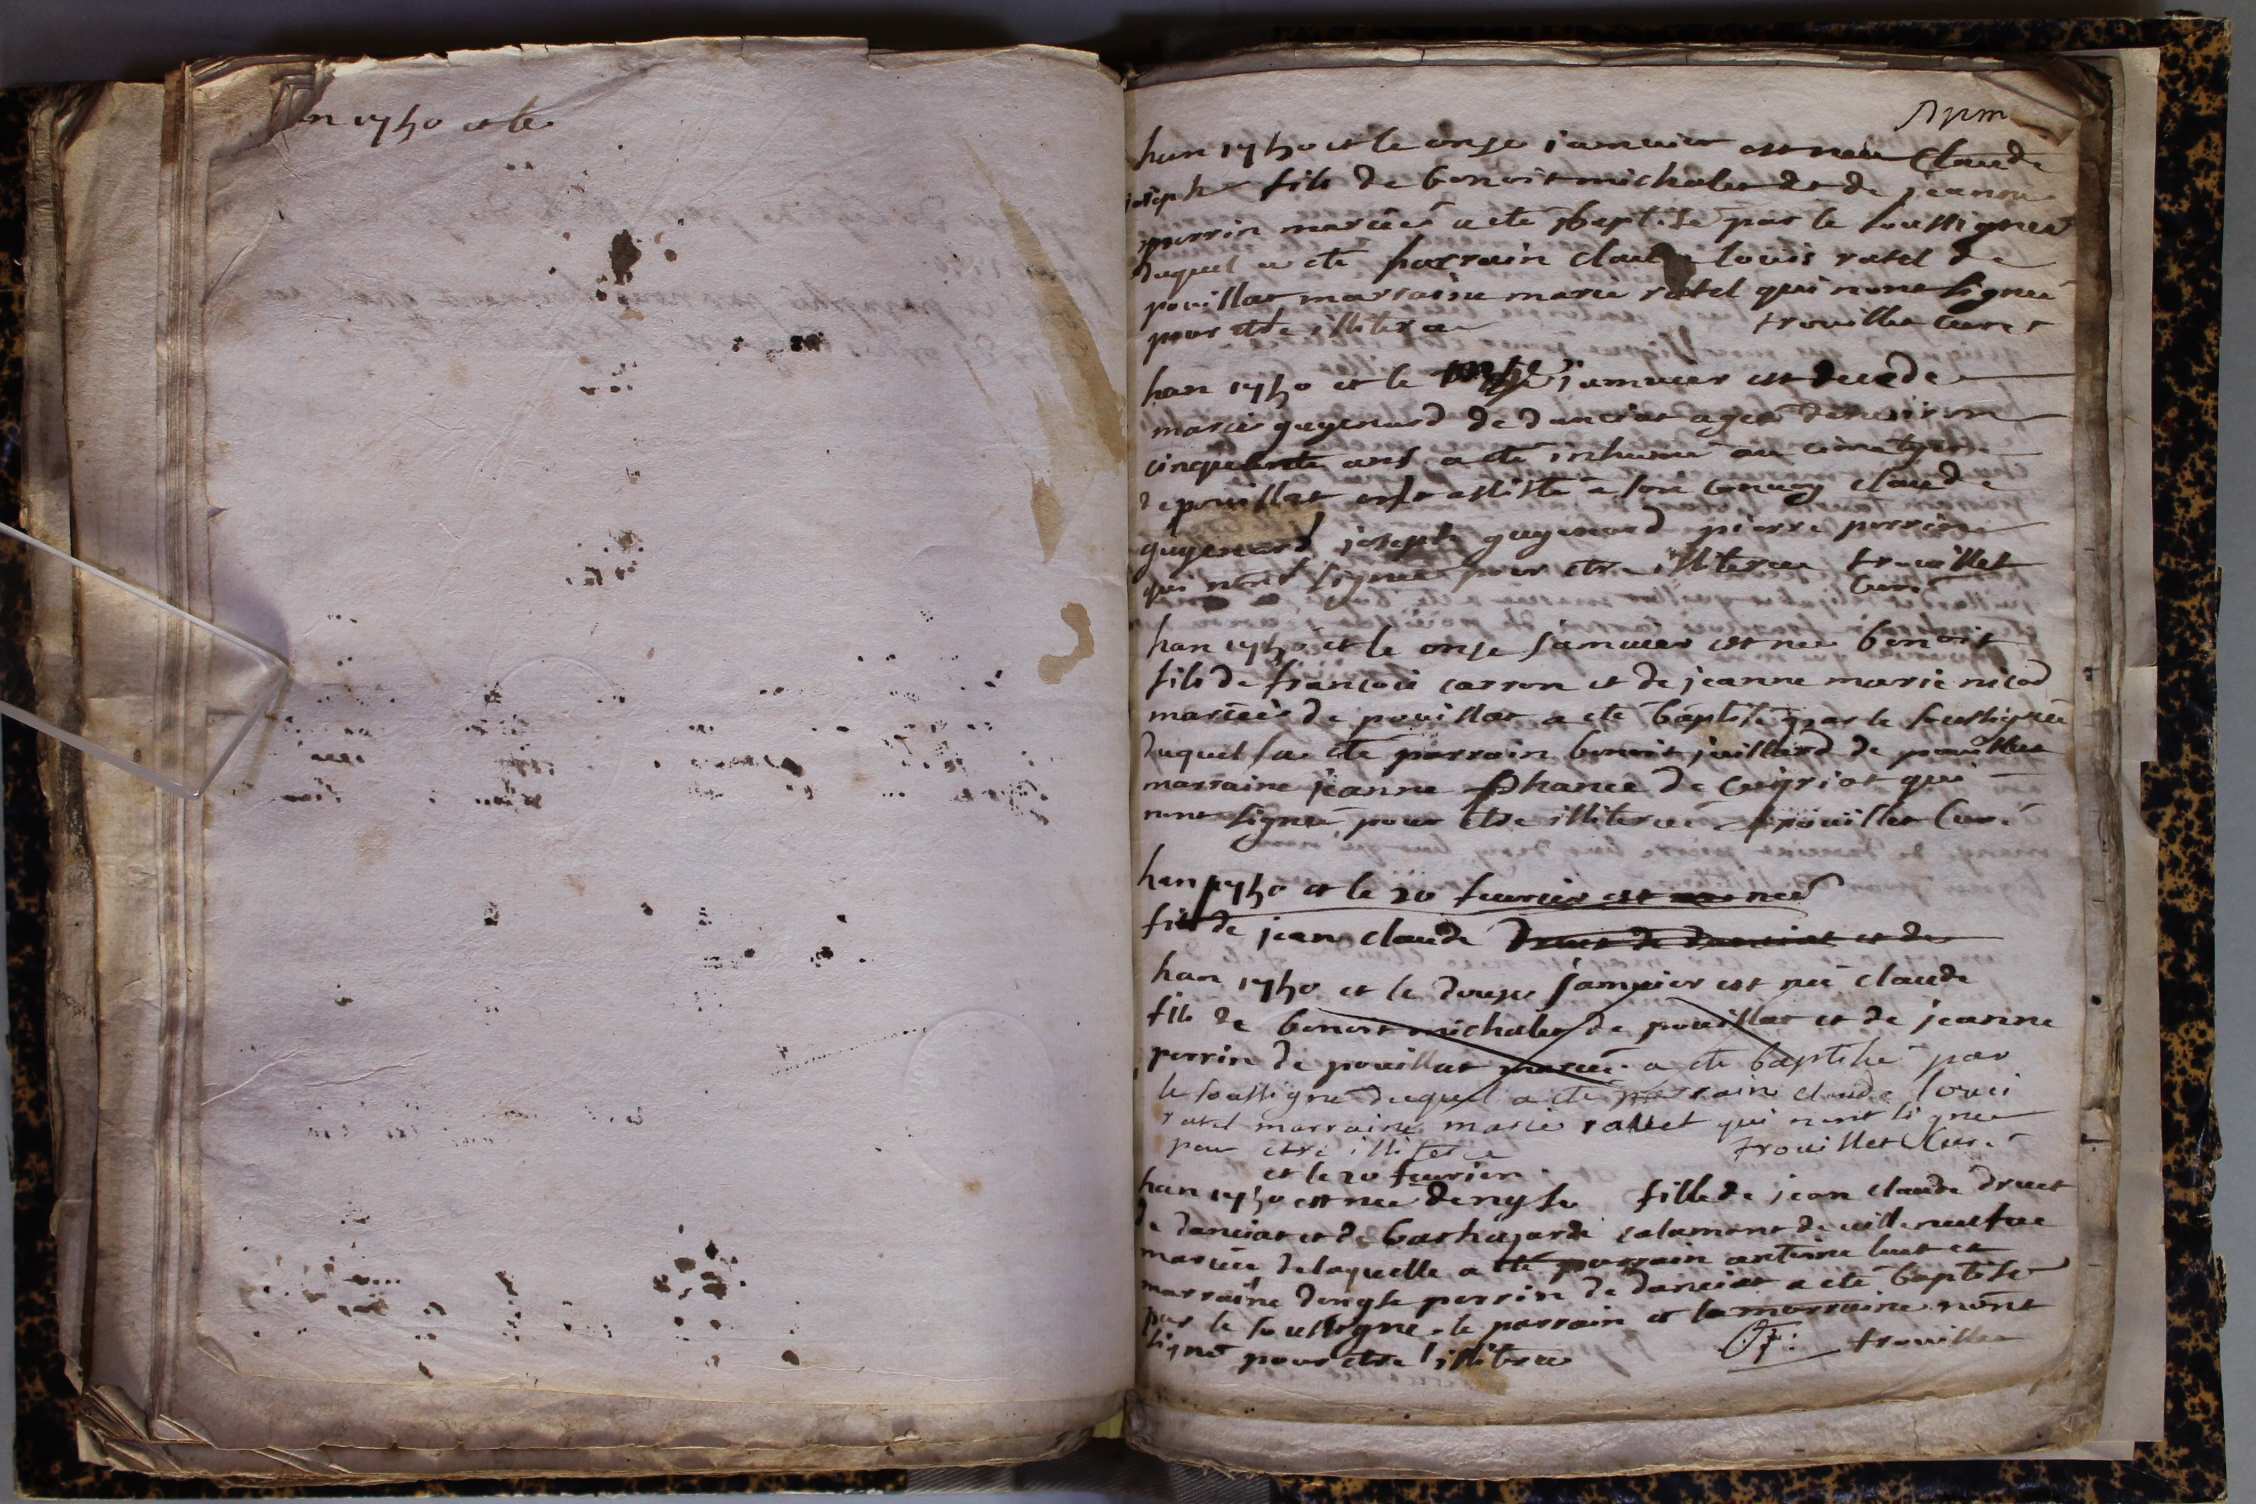 an 1750 et le
han 1750 et le onze januier est née Claude
joseph fils de benoit michalet et de jeanne
perrin mariés a eté baptisé par le soussigneé
duquel a eté parrain claude louis ratel de
pouillat marraine marie ratel qui nont signeé
pour etre illiteré trouillet cure
han 1750 et le januier est decede
marie guyenard de danciat ageé denuiron
cinquante ans a eté inhumé au cimetyere
de pouillat ont assisté a son conuoy claude
guyenard joseph guyenard pierre perrin
qui nont signeé pour etre illiteré trouillet
Curé
han 1750 et le onze januier est née benoit
fils de francois carron et de jeanne marie nicod
marieés de pouillat a eté baptisé par le soussigneé
duquel a eté parrain benoit juillard de pouillat
marraine jeanne de Ceyriat qui
nont signeé pour etre illiteré trouillet Curé
han 1750 et le 20 feurier est née
fils de jean claude Druet de danciat et de
han 1750 et le douze januier est né claude
fils de benoit michalet de pouillat et de jeanne
perrin de pouillat marieé a eté baptisé par
le soussigné duquel a eté parrain claude loui
ratel marraine marie rattet qui nont signeé
pour etre illiteré trouillet Curé
et le 20 feurier
han 1750 est neé denyse fille de jean claude druet
de danciat et de calamant de uilleneufue
marieé delaquelle a eté parrain antoine huet et
marraine denyse perrin de danciat a eté baptisé
par le soussigné le parrain et la marraine nont
signé pour etre illiteré trouillet